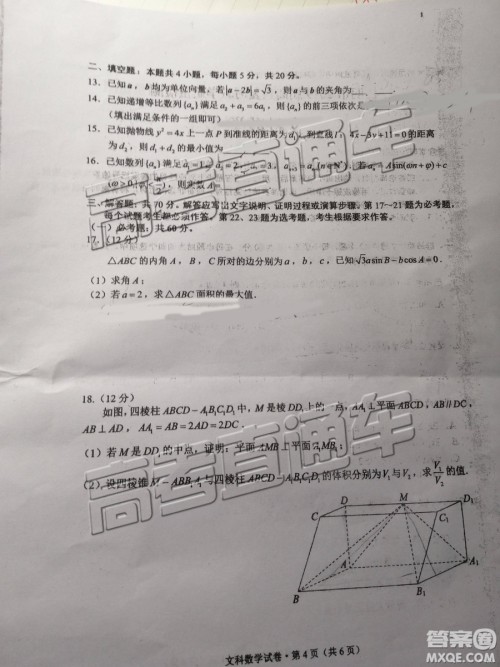 1
二、填空题：本题共4小题，每小题5分，共20分。
13．已知a，b均为单位向量，若|a−2b|=√3，则a与b的夹角为
14．已知递增等比数列{aₙ}满足a₂+a₃=6a₁，则{aₙ}的前三项依次是
（填出满足条件的一组即可）
15．已知抛物线y²=4x上一点P到准线的距离为d₁，到直线l：4x−3y+11=0的距离
为d₂，则d₁+d₂的最小值为
16．已知数列{aₙ}满足a₁=1，a₂=2，a₃
三、解答题：共70分。解答应写出文字说明、证明过程或演算步骤。第17~21题为必考题，
每个试题考生都必须作答。第22、23题为选考题，考生根据要求作答。
（一）必考题：共60分。
17．（12分）
△ABC的内角A，B，C所对的边分别为a，b，c，已知√3asinB−bcosA=0．
（1）求角A；
（2）若a=2，求△ABC面积的最大值．
18．（12分）
如图，四棱柱ABCD−A₁B₁C₁D₁中，M是棱DD₁上的一点，AA₁⊥平面ABCD，AB∥DC，
AB⊥AD，AA₁=AB=2AD=2DC．
（1）若M是DD₁的中点，证明：平面AMB⊥平面A₁MB₁；
（2）设四棱锥M−ABB₁A₁与四棱柱ABCD−A₁B₁C₁D₁的体积分别为V₁与V₂，求V₁/V₂的值．
D M D₁
C C₁
A A₁
B B₁
文科数学试卷·第4页（共6页）
高考直通车
高考直通车
答案圈
MXQE.COM